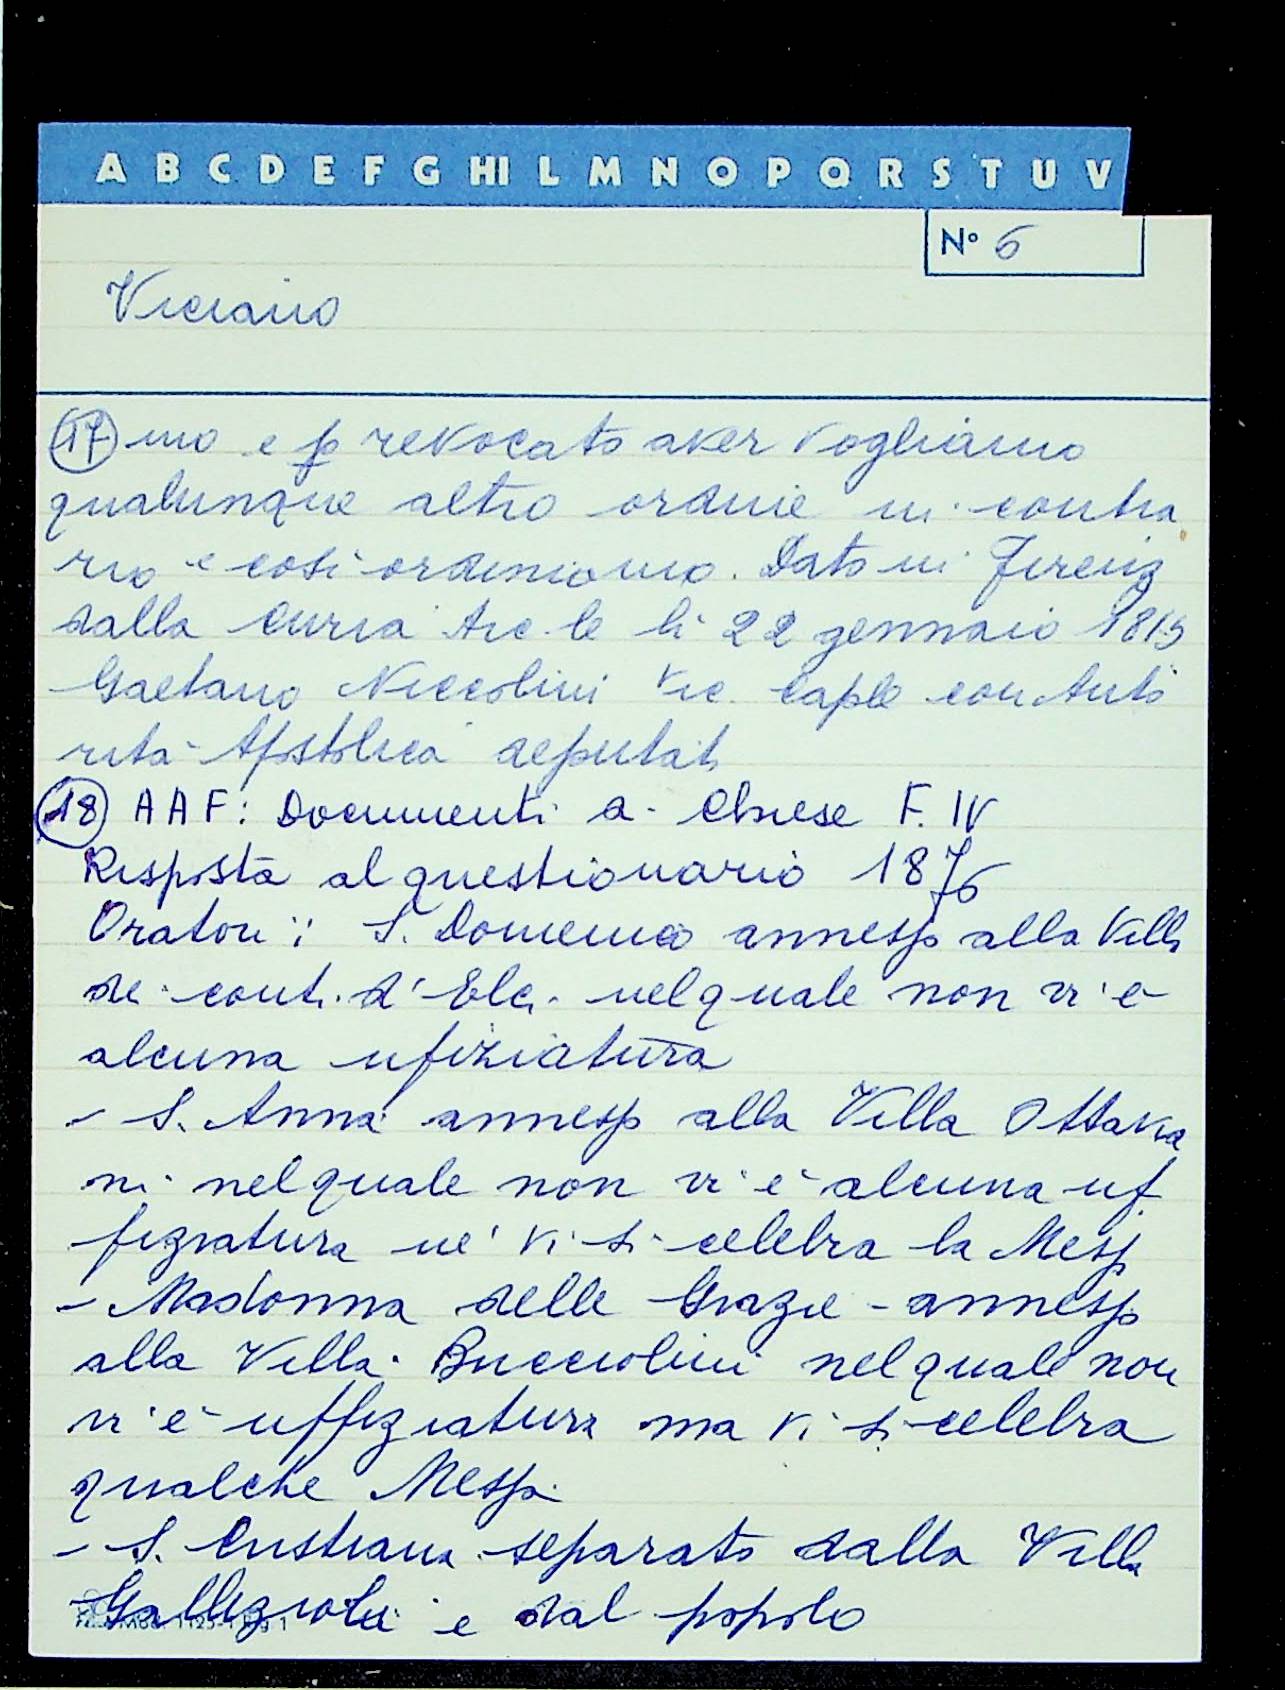 A B C D E F G HI L M N O P Q R S T U V
N° 6
Viciano
17 mo e p revocato aver vogliamo
qualunque altro ordine in contra
rio e così ordiniamo. Dato in Firenz
dalla Curia Arc.le li 22 gennaio 1815
Gaetano Niccolini Vic. Caple con Auto
rità Apostolica deputat
18 AAF: Documenti a. Chiese F. IV
Risposta al questionario 1876
Oratori: S. Domenico annesso alla Villa
dei conti d'Elci nel quale non vi è
alcuna ufiziatura
- S. Anna annesso alla Villa Ottavia
ni nel quale non vi è alcuna uf
fiziatura né vi si celebra la Messa
- Madonna delle Grazie - annesso
alla Villa Bucciolini nel quale non
vi è uffiziatura ma vi si celebra
qualche Messa.
- S. Cristiana separato dalla Villa
e dal popolo